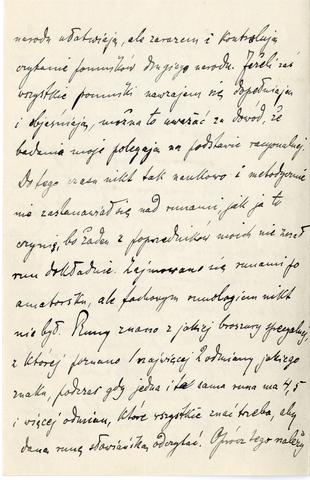 narodu ułatwiają, ale zarazem i kontrolują
czytanie pomników drugiego narodu. Jeżeli zaś
wszystkie pomniki nawzajem się dopełniają
i objaśniają, można to uważać za dowód, że
badania moje polegają na podstawie racyonalnej.
Do tego czasu nikt tak naukowo i metodycznie
nie zastanawiał się nad runami, jak ja to
czynię, bo żaden z poprzedników moich nie znał
run dokładnie. Zajmowano się runami po
amatorsku, ale fachowym runologiem nikt
nie był. Runy znano z jakiejś broszury specyalnej,
z której poznano najwięcej 2 odmiany jakiego
znaku, podczas gdy jedna i ta sama runa ma 4, 5
i więcej odmian, które wszystkie znać trzeba, aby
daną runę słowiańską odczytać. Oprócz tego należy